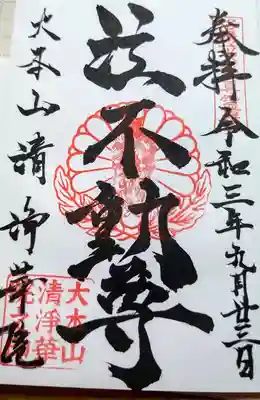 奉拝 令和三年九月廿三日
泣不動尊
大本山 清浄華院
大本山
清淨華
院之印